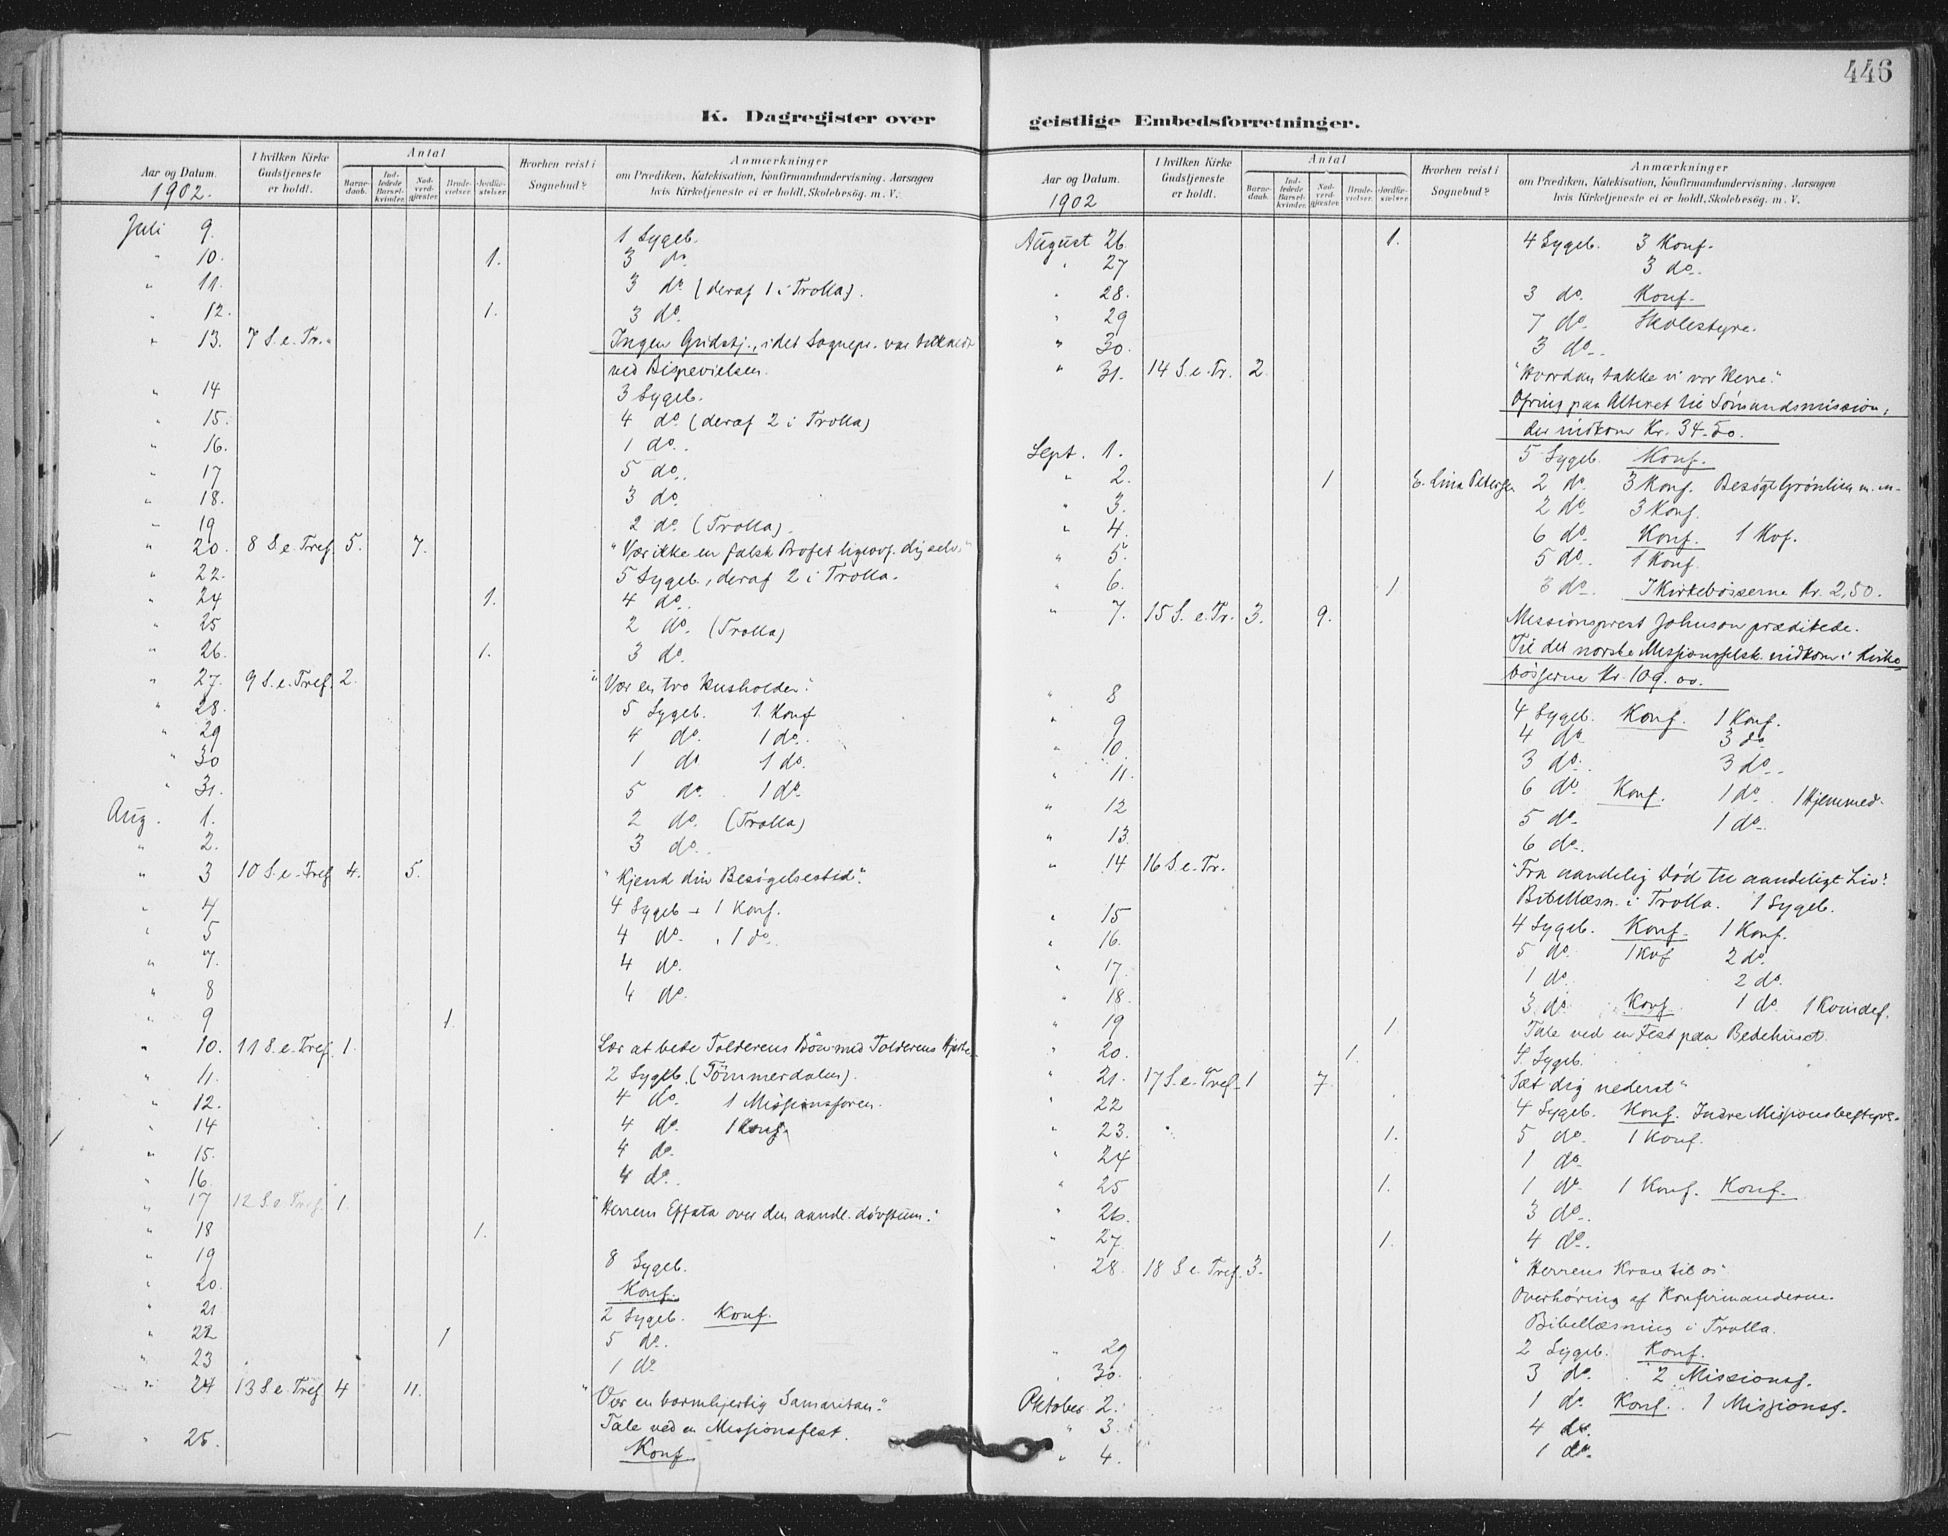 446
K. Dagregister over
geistlige Embedsforretninger.
Aar og Datum.
1902.
I hvilken Kirke Gudstjeneste er holdt.
Antal
Barnedaab.
Indledede Barselkvinder.
Nadverdgjæster.
Brudevielser.
Jordfæstelser.
Hvorhen reist i Sognebud?
Anmærkninger
om Prædiken, Katekisation, Konfirmandundervisning, Aarsagen
hvis Kirketjeneste ei er holdt, Skolebesøg. m. V.
Juli 9. 1 Sygeb.
" 10. 1. 3 do
" 11. 3 do (deraf 1 i Trolla).
" 12. 1. 3 do.
" 13. 7 S. e. Tr. Ingen Gudstj., idet Sognepr. var
ved Bispevielsen.
" 14 3 Sygeb.
" 15. 4 do (deraf 2 i Trolla)
" 16. 1 do.
" 17 5 do.
" 18. 3 do
" 19 2 do. (Trolla).
" 20. 8 S. e. Tref. 5. 7. "Vær ikke en falsk Profet ligeovf. dig selv."
" 22. 5 Sygeb., deraf 2 i Trolla.
" 24 1. 4 do.
" 25 2 do. (Trolla)
" 26. 1. 3 do.
" 27. 9 S. e. Tref. 2. "Vær en tro Husholder."
" 28. 5 Sygeb. 1 Konf
" 29 4 do. 1 do.
" 30 1 do 1 do.
" 31. 5 do. 1 do.
Aug. 1. 2 do. (Trolla)
" 2. 3 do.
" 3 10 S. e. Tref 4. 5. "Kjend din Besøgelsestid".
" 4 4 Sygeb + 1 Konf.
" 5 4 do. 1 do.
" 7. 4 do.
" 8 4 do.
" 9 1.
" 10. 11 S. e. Tref. 1. Lær at bede Tolderens Bøn med Tolderens Hjerte.
" 11. 2 Sygeb. (Tømmerdalen).
" 12. 4 do. 1 Missionsforen.
" 14 4 do. 1 Konf.
" 15. 4 do.
" 16. 4 do.
" 17 12 S. e. Tref. 1. "Herrens Effata over den aandl. døvstum."
" 18 1.
" 19 8 Sygeb.
" 20. Konf.
" 21 2 Sygeb. Konf.
" 22 1 5 do.
" 23 1 do
" 24 13 S. e. Tref 4 11. "Vær en barmhjertig Samaritan."
Tale ved en Missionsfest.
" 25. Konf
Aar og Datum.
1902
I hvilken Kirke Gudstjeneste er holdt.
Antal
Barnedaab.
Indledede Barselkvinder.
Nadverdgjæster.
Brudevielser.
Jordfæstelser.
Hvorhen reist i Sognebud?
Anmærkninger
om Prædiken, Katekisation, Konfirmandundervisning, Aarsagen
hvis Kirketjeneste ei er holdt, Skolebesøg. m. V.
August 26. 1. 4 Sygeb. 3 Konf.
" 27 3 do.
" 28. 3 do. Konf.
" 29 7 do. Skolestyre.
" 30. 3 do.
" 31. 14 S. e. Tr. 2. "Hvordan takke vi vor Herre."
Ofring paa Alteret til Sømandsmission,
der indkom Kr. 34-50.
Sept. 1. 5 Sygeb. Konf.
" 2. 1 Lina Petersen 2 do. 3 Konf. Besøgt Grønlien m. m.
" 3. 2 do. 3 Konf.
" 4. 6 do. Konf. 1 Kvf.
" 5. 5 do. 1 Konf.
" 6. 1 3 do. I Kirkebøsserne Kr. 2,50.
" 7. 15 S. e. Tr. 3. 9. Missionsprest Johnson prædikede.
Til det norske Missionsselsk. indkom i Kirke-
bøsserne Kr. 109.00.
" 8 4 Sygeb. Konf. 1 Konf.
" 9 4 do 3 do
" 10. 3 do. 3 do.
" 11. 6 do. Konf. 1 do. 1 Hjemmed.
" 12 5 do. 1 do.
" 13. 6 do.
" 14 16 S. e. Tr. "Fra aandelig Død til aandeligt Liv."
Bibellæsn. i Trolla. 1 Sygeb.
" 15 4 Sygeb. Konf. 1 Konf.
" 16. 5 do. 1 Kvf 2 do.
" 17. 1 do. 2 do.
" 18 3 do. Konf. 1 do. 1 Kvindef.
" 19 1. Tale ved en Fest paa Bedehuset.
" 20. 1. 4 Sygeb.
" 21. 17 S. e. Tref. 1 7. "Sæt dig nederst"
" 22 4 Sygeb. Konf. Indre Missionsbestyr.
" 23. 1. 5 do. 1 Konf.
" 24 1 do.
" 25 1. 1 do. 1 Konf. Konf.
" 26. 3 do.
" 27. 1. 4 do.
" 28. 18 S. e. Tref. 3. "Herrens Krav til os"
Overhøring af Konfirmanderne.
Bibellæsning i Trolla.
" 29 2 Sygeb. Konf.
" 30. 3 do. 2 Missionsf.
Oktober 2. 1 do. Konf. 1 Missionsf.
" 3. 4 do.
" 4. 1 do.